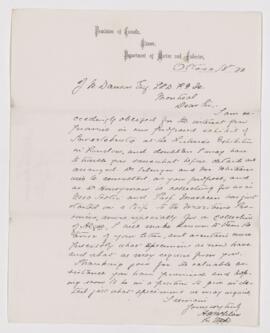 Dominion of Canada,
Fisheries,
Department of Marine and Fisheries,
Ottawa,
J W Dawson Esq LLD F.R.S
Montreal
Dear Sir,
I am ex
ceedingly obliged for the interest you
in our proposed exhibit of
Invertebrata at the Fisheries Exhibition
in London, and doubtless I may have
to trouble you somewhat before details are
arranged Dr Selwyn and Mr Whiteaves
will be consulted as you propose, and
as Dr Honeyman is collecting for us in
Nova Scotia and Prof Macoun has just
started on a trip to the Maritime Pro
vinces, more especially for a collection
of Algae, I will make known to them the
of your letter, and ascertain more
precisely what specimens we now have
and what we may require from you.
Thanking you for the valuable as
sistance you have promised and hop
ing soon to be in a position to give in de
tail just what specimens we may require,
I remain
Yours very truly